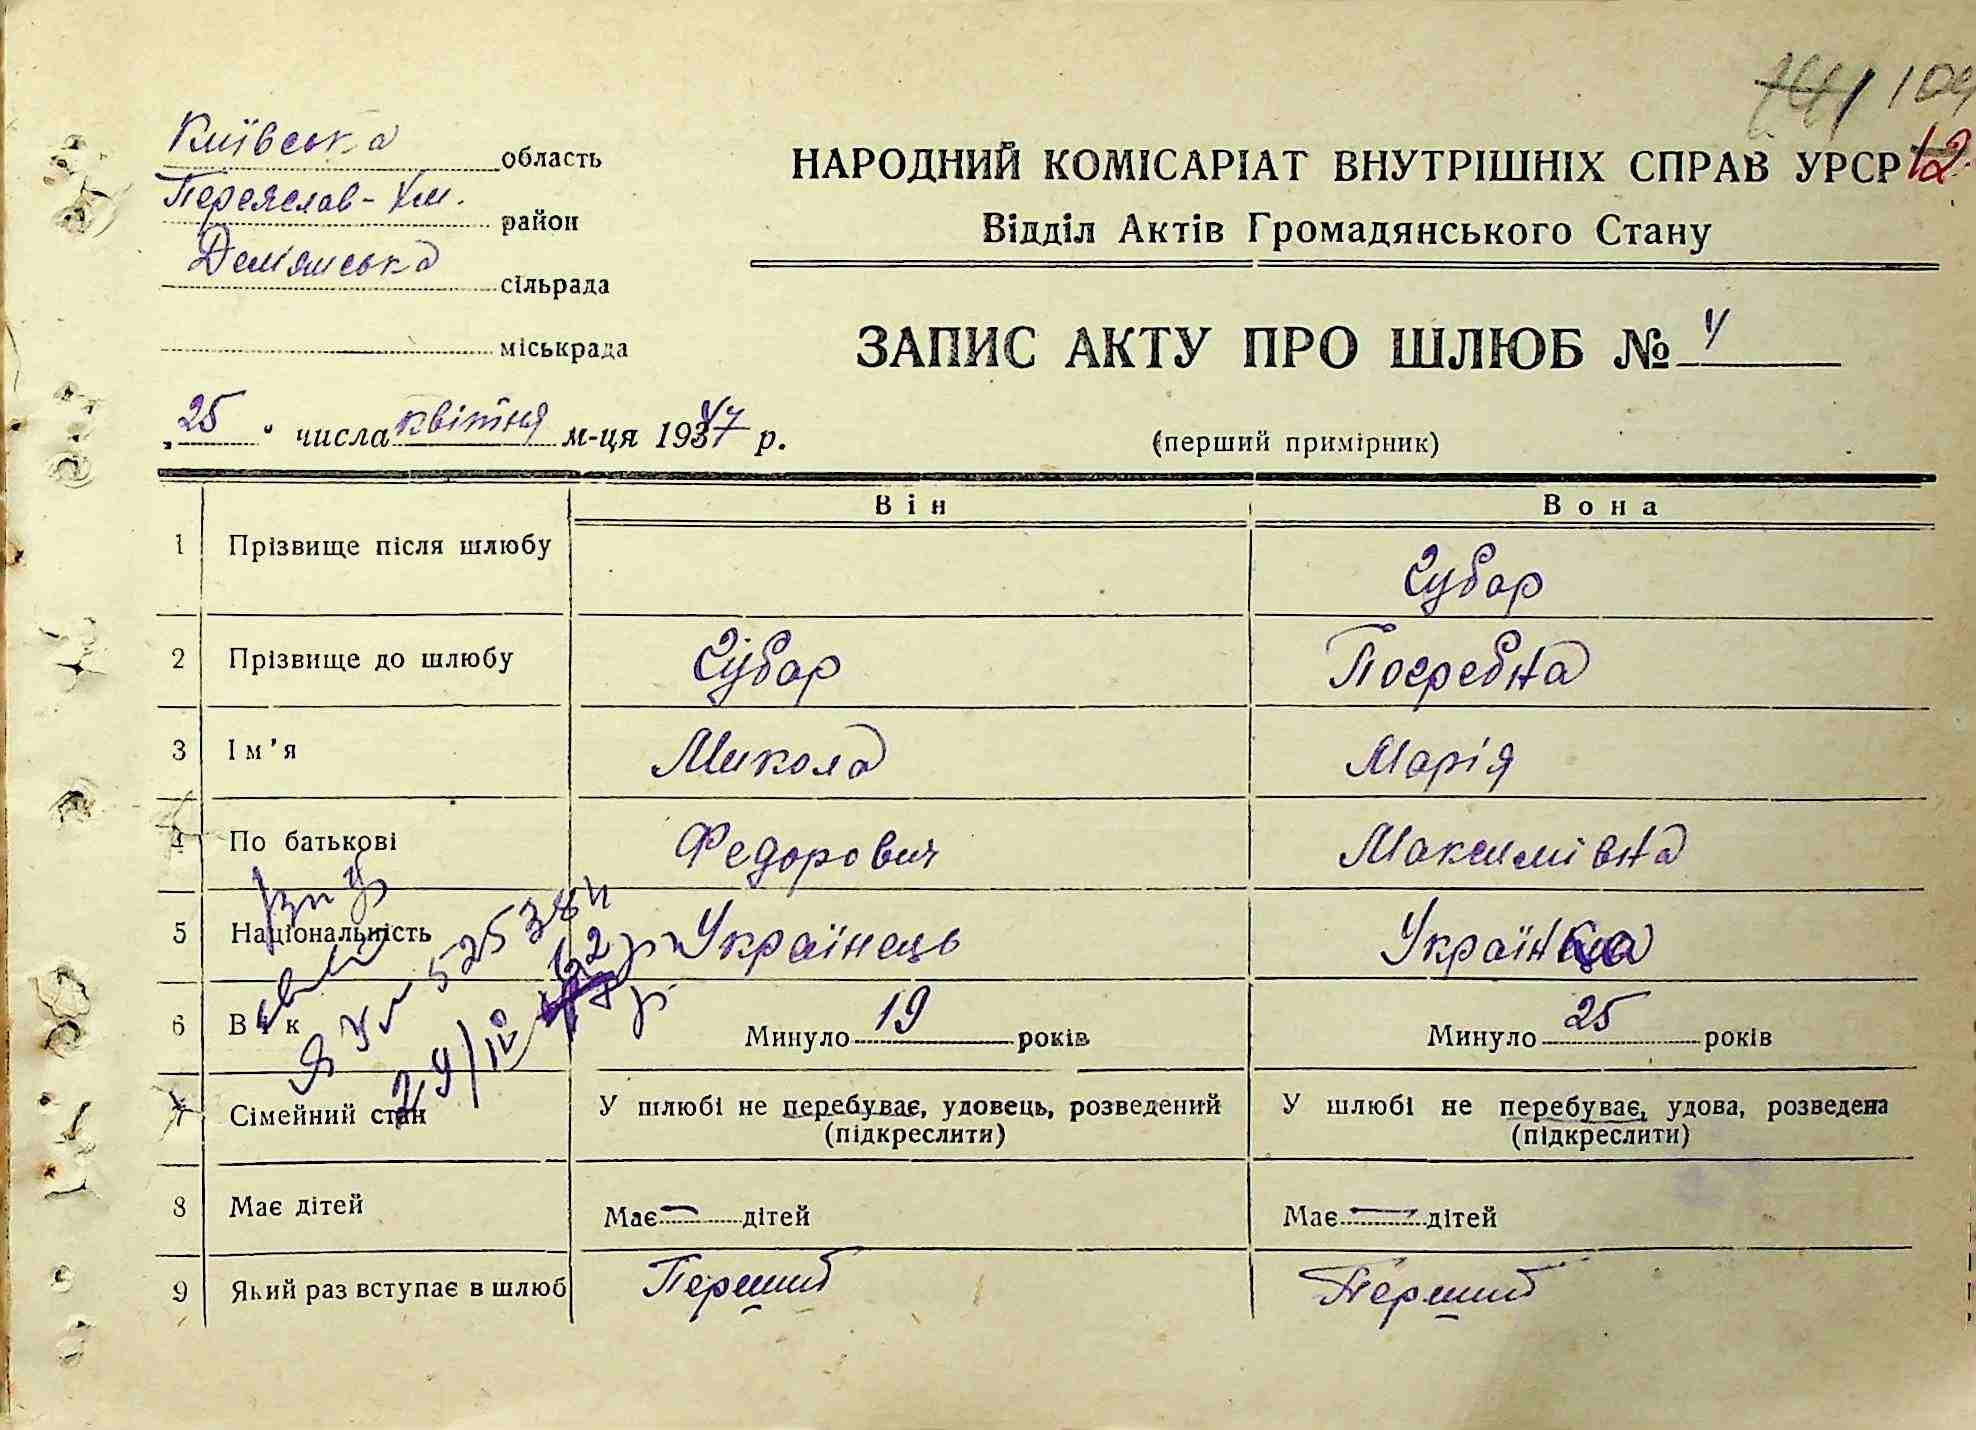 109
Київська область
НАРОДНИЙ КОМІСАРІАТ ВНУТРІШНІХ СПРАВ УРСР 12
Переяслав-Хм. район
Відділ Актів Громадянського Стану
Дем'янська сільрада
міськрада
ЗАПИС АКТУ ПРО ШЛЮБ № 4
„25“ числа квітня м-ця 1947 р.
(перший примірник)
Він Вона
1 Прізвище після шлюбу Чубар
2 Прізвище до шлюбу Чубар Погребна
3 Ім'я Микола Марія
4 По батькові Федорович Максимівна
5 Національність Українець Українка
6 Вік Минуло 19 років Минуло 25 років
525384
29/IV
7 Сімейний стан У шлюбі не перебуває, удовець, розведений У шлюбі не перебуває, удова, розведена
(підкреслити) (підкреслити)
8 Має дітей Має — дітей Має — дітей
9 Який раз вступає в шлюб Перший Перший